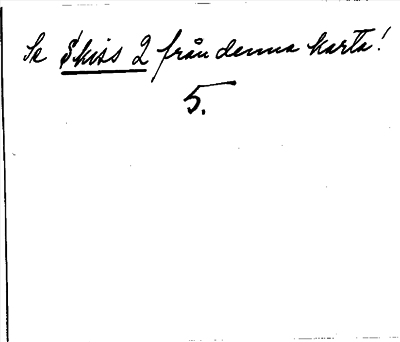 Se Skiss 2 från denna karta!
5.